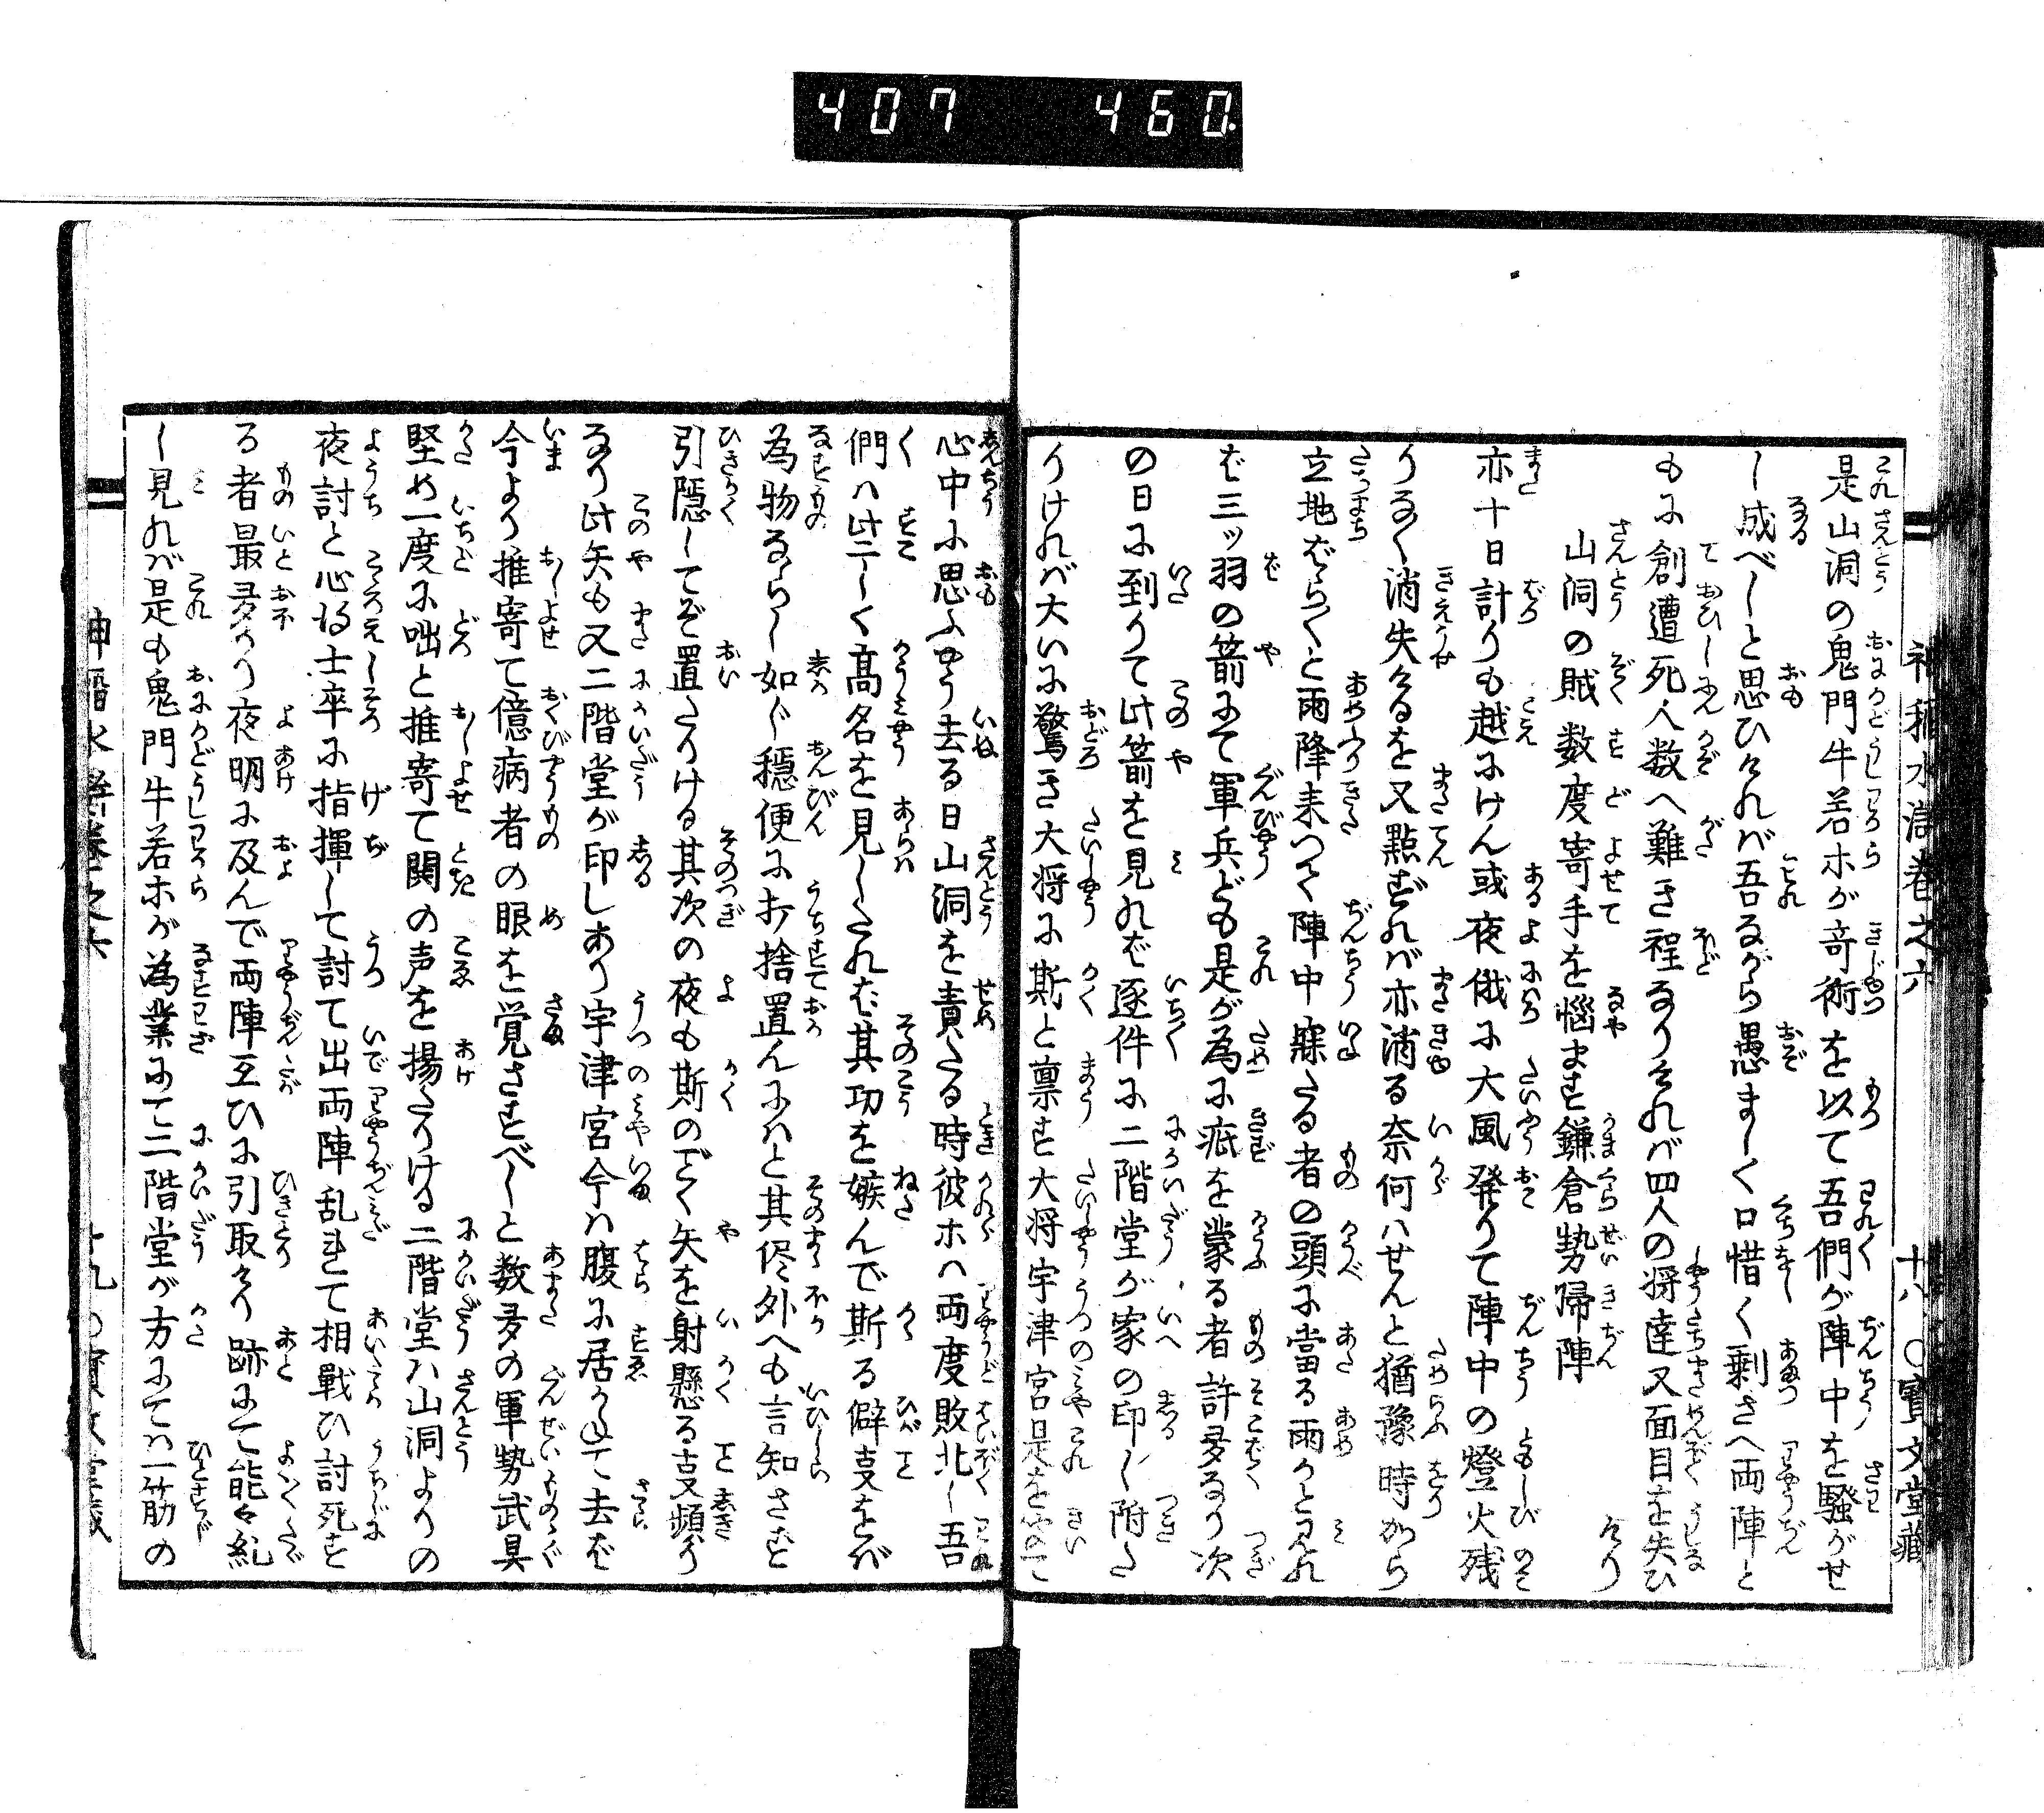 407 460
神稲水滸巻之六 十八 ○寳文堂藏
是山洞の鬼門牛若ホが竒術を以て吾們が陣中を騒がせ
し成べしと思ひけれバ吾ながら愚ましく口惜く剰さへ両陣と
もに創遭死人数へ難き程なりけれバ四人の将達又面目を失ひ
けり
山洞の賊数度寄手を悩ます鎌倉勢帰陣
亦十日計りも越にけん或夜俄に大風発りて陣中の燈火残
りなく消失けるを又點ずれバ亦消る奈何ハせんと猶豫時から
立地ばら〱と雨降来つて陣中寐たる者の頭に當る雨かと見れ
ば三ッ羽の箭にて軍兵ども是が為に疵を蒙る者許多なり次
の日に到りて此箭を見れば逐件に二階堂が家の印し附た
りけれバ大いに驚き大将に斯と禀す大将宇津宮是を
心中に思ふやう去る日山洞を責たる時彼ホハ両度敗北し吾
們ハ此二しく髙名を見したれば其功を嫉んで斯る僻支をバ
為物ならし如じ穏便に打捨置んにハと其侭外へも言知さず
引隠してぞ置たりける其次の夜も斯のごく矢を射懸る支頻り
なり此矢も又二階堂が印しあり宇津宮今ハ腹に居かねて去ば
今より推寄て億病者の眼を覚さすべしと数多の軍勢武具
堅め一度に咄と推寄て関の声を揚たりける二階堂ハ山洞よりの
夜討と心得士卒に指揮して討て出両陣乱れて相戦ひ討死す
る者最多かり夜明に及んで両陣互ひに引取けり跡にて能々糺
し見れバ是も鬼門牛若ホが為業にて二階堂が方にてハ一筋の
神稲水滸巻之六 十九 ○寳文堂藏